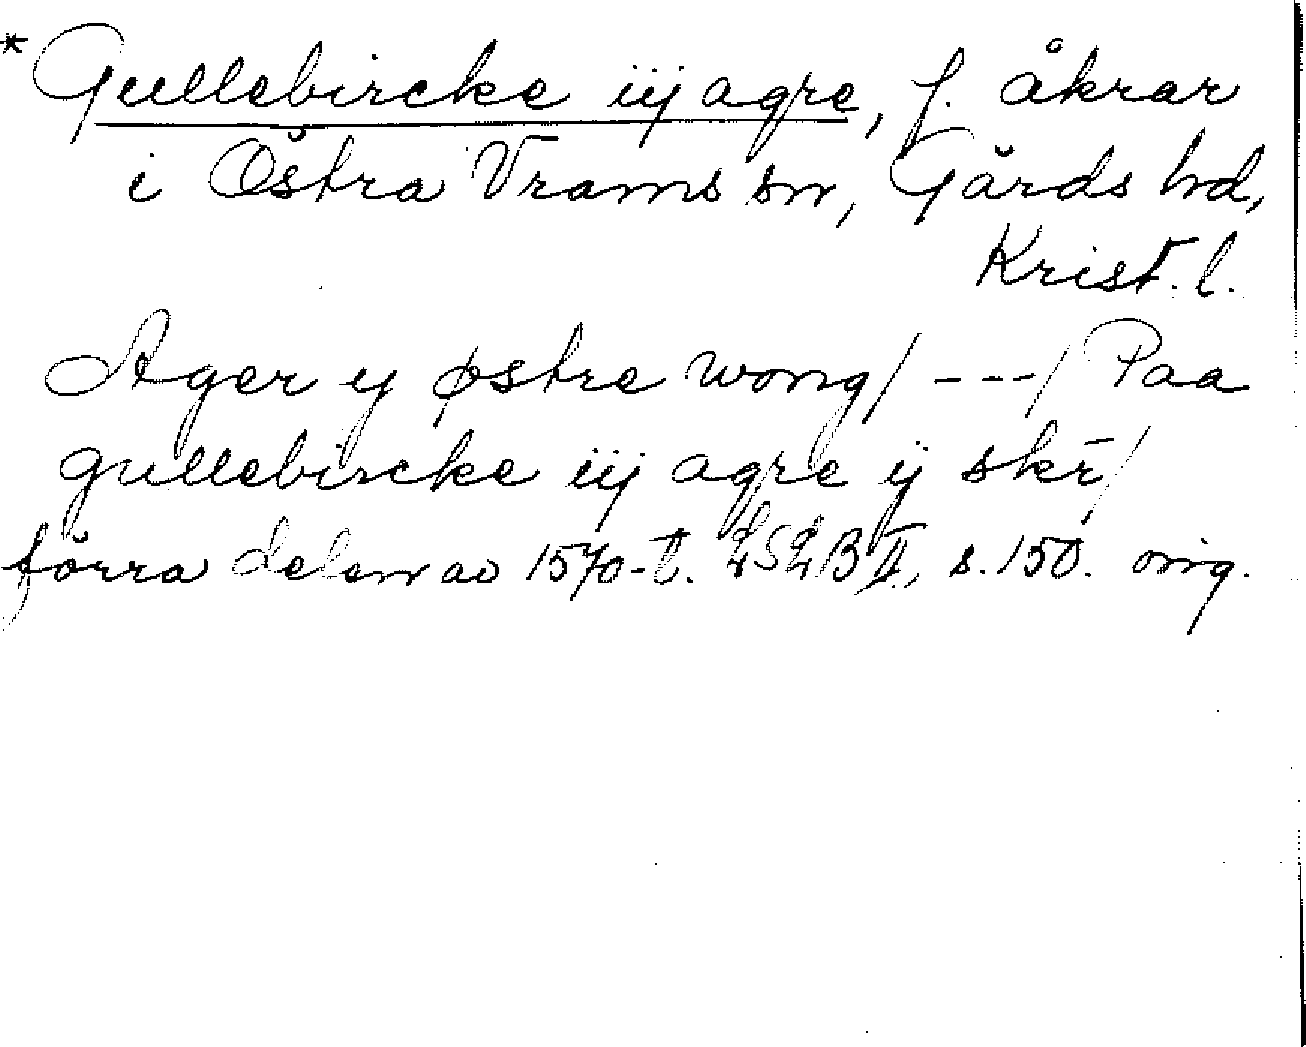 * Gullebircke iij agre, f. åkrar
i Östra Vrams sn, Gärds hd,
Krist. l.
Ager y østre wong / --- / Paa
gullebircke iij agre ij skr̄ /
förra delen av 1570-t. LSLB II, s. 150. orig.